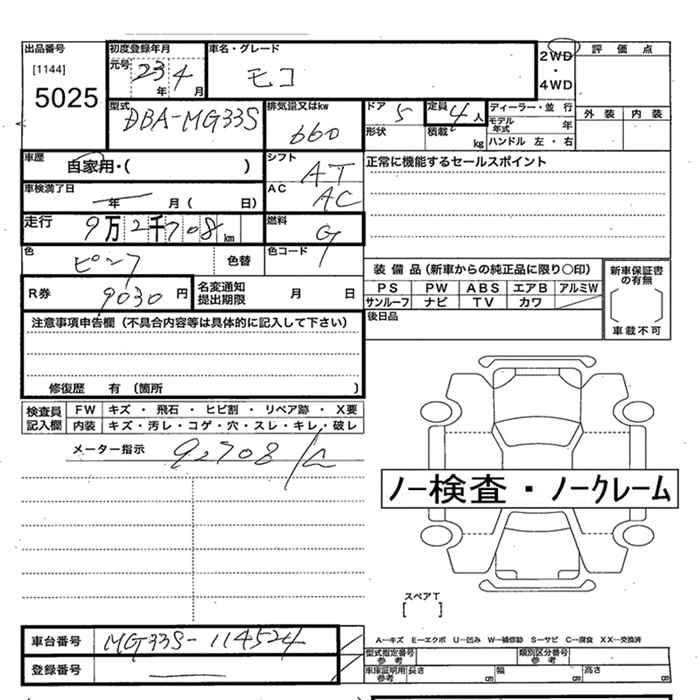 出品番号 初度登録年月 車名・グレード 2WD 評価点
[1144] 元号 23年 4月 モコ ・
5025 4WD
型式 排気量又はkw ドア 5 定員 4人 ディーラー・並行 外装 内装
DBA-MG33S 660 形状 積載 kg モデル年式 年
ハンドル 左・右
車歴 自家用・( ) シフト AT 正常に機能するセールスポイント
車検満了日 年 月( 日) AC AC
走行 9万2千708km 燃料 G
色 ピンク 色替 色コード
装備品(新車からの純正品に限り○印) 新車保証書の有無
R券 9030円 名変通知提出期限 月 日 PS PW ABS エアB アルミW
サンルーフ ナビ TV カワ 車載不可
注意事項申告欄(不具合内容等は具体的に記入して下さい) 後日品
修復歴 有〔箇所 〕
検査員 FW キズ・飛石・ヒビ割・リペア跡・X要
記入欄 内装 キズ・汚レ・コゲ・穴・スレ・キレ・破レ
メーター指示 92708
ノー検査・ノークレーム
スペアT
[ ]
車台番号 MG33S-114524 A―キズ E―エクボ U―凹み W―補修跡 S―サビ C―腐食 XX―交換済
型式指定番号 参考 類別区分番号 参考
登録番号 車庫証明用 参考 長さ cm 幅 cm 高さ cm